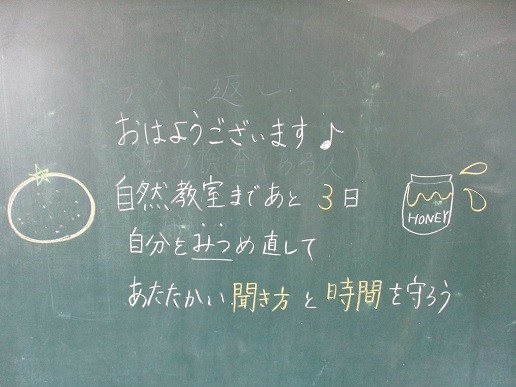 おはようございます♪
自然教室まであと3日
自分をみつめ直して
HONEY
あたたかい聞き方と時間を守ろう